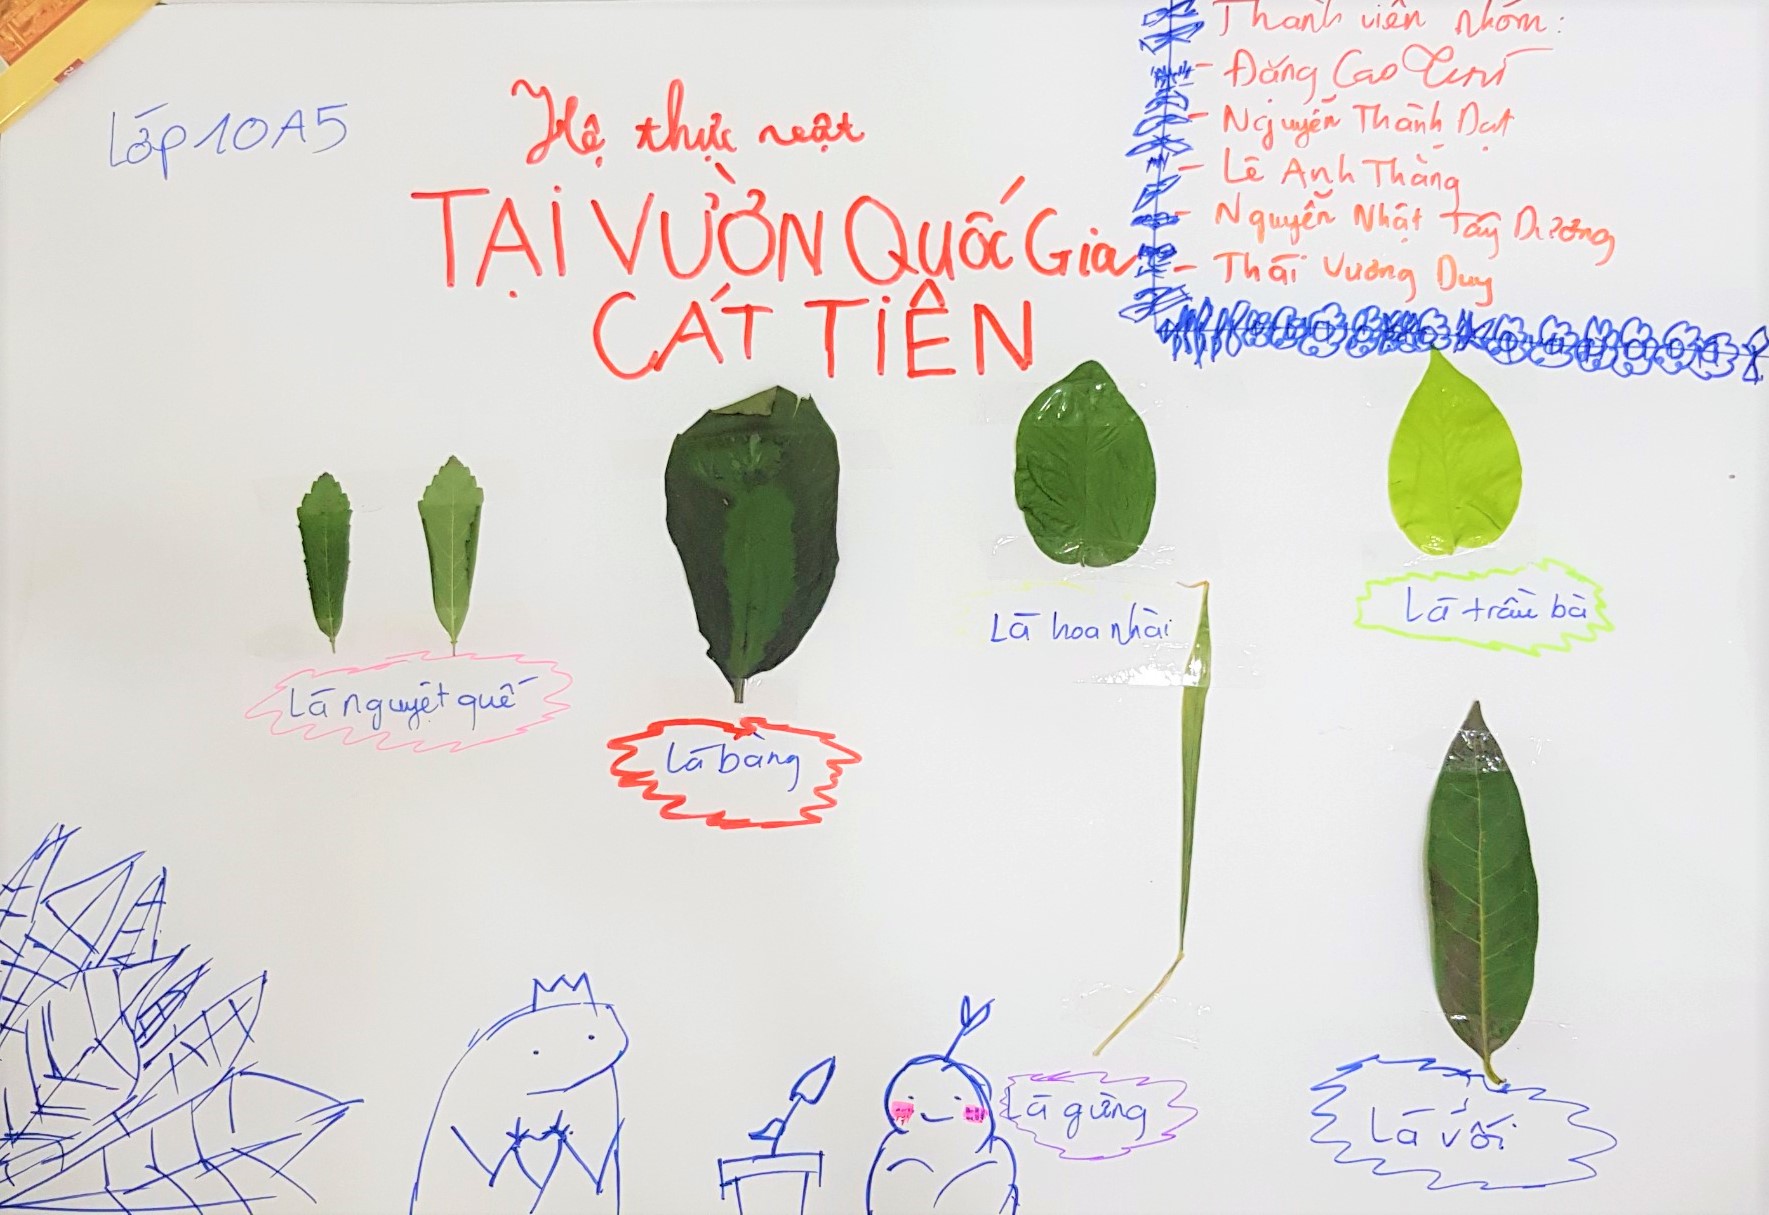 Lớp 10A5
Hệ thực vật
TẠI VƯỜN QUốC Gia
CÁT TIÊN
Thành viên nhóm:
- Đặng Cao Trí
- Nguyễn Thành Đạt
- Lê Anh Thắng
- Nguyễn Nhật Tây Dương
- Thái Vương Duy
Lá nguyệt quế
Lá bàng
Lá hoa nhài
Lá trầu bà
Lá gừng
Lá vối